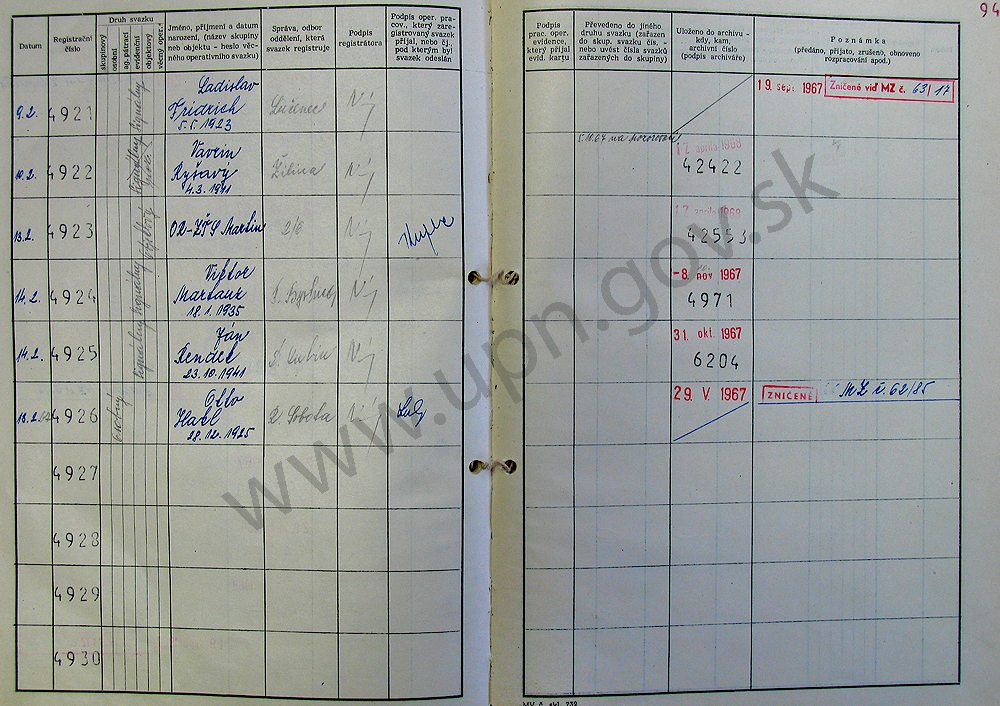 94
Datum
Registrační
číslo
Druh svazku
skupinový
osobní
ag. pátrací
evidenční
objektový
věcný oper.
Jméno, příjmení a datum
narození, (název skupiny
neb objektu - heslo věc-
ného operativního svazku)
Správa, odbor
oddělení, která
svazek registruje
Podpis
registrátora
Podpis oper. pra-
cov., který zare-
gistrovaný svazek
přijal, nebo čj.,
pod kterým byl
svazek odeslán
Podpis
prac. oper.
evidence,
který přijal
evid. kartu
Převedeno do jiného
druhu svazku (zařazen
do skup. svazku čís. -
nebo uvést čísla svazků
zařazených do skupiny)
Uloženo do archivu -
kdy,
archivní číslo
(podpis archiváře)
Poznámka
(předáno, přijato, zrušeno, obnoveno
rozpracování apod.)
9.2. 4921 Ladislav
Fridrich
5.5.1923
Lučenec
19. sept. 1967 Zničené viď MZ č. 63/17
10.2. 4922 Vavrin
Ryšavý
4.3.1941
Žilina
17. apríla 1968
42422
13.2. 4923 OO-ZTS Martin 2/6
17. apríla 1968
42553
14.2. 4924 Viktor
18.1.1935
-8. nov 1967
4971
14.2. 4925 Ján
Kendec
23.10.1941
31. okt. 1967
6204
signálny
osobný
4926 Otto
28.12.1925
R. Sobota
29 V. 1967 ZNIČENÉ MZ č. 62/85
4927
4928
4929
4930
www.upn.gov.sk